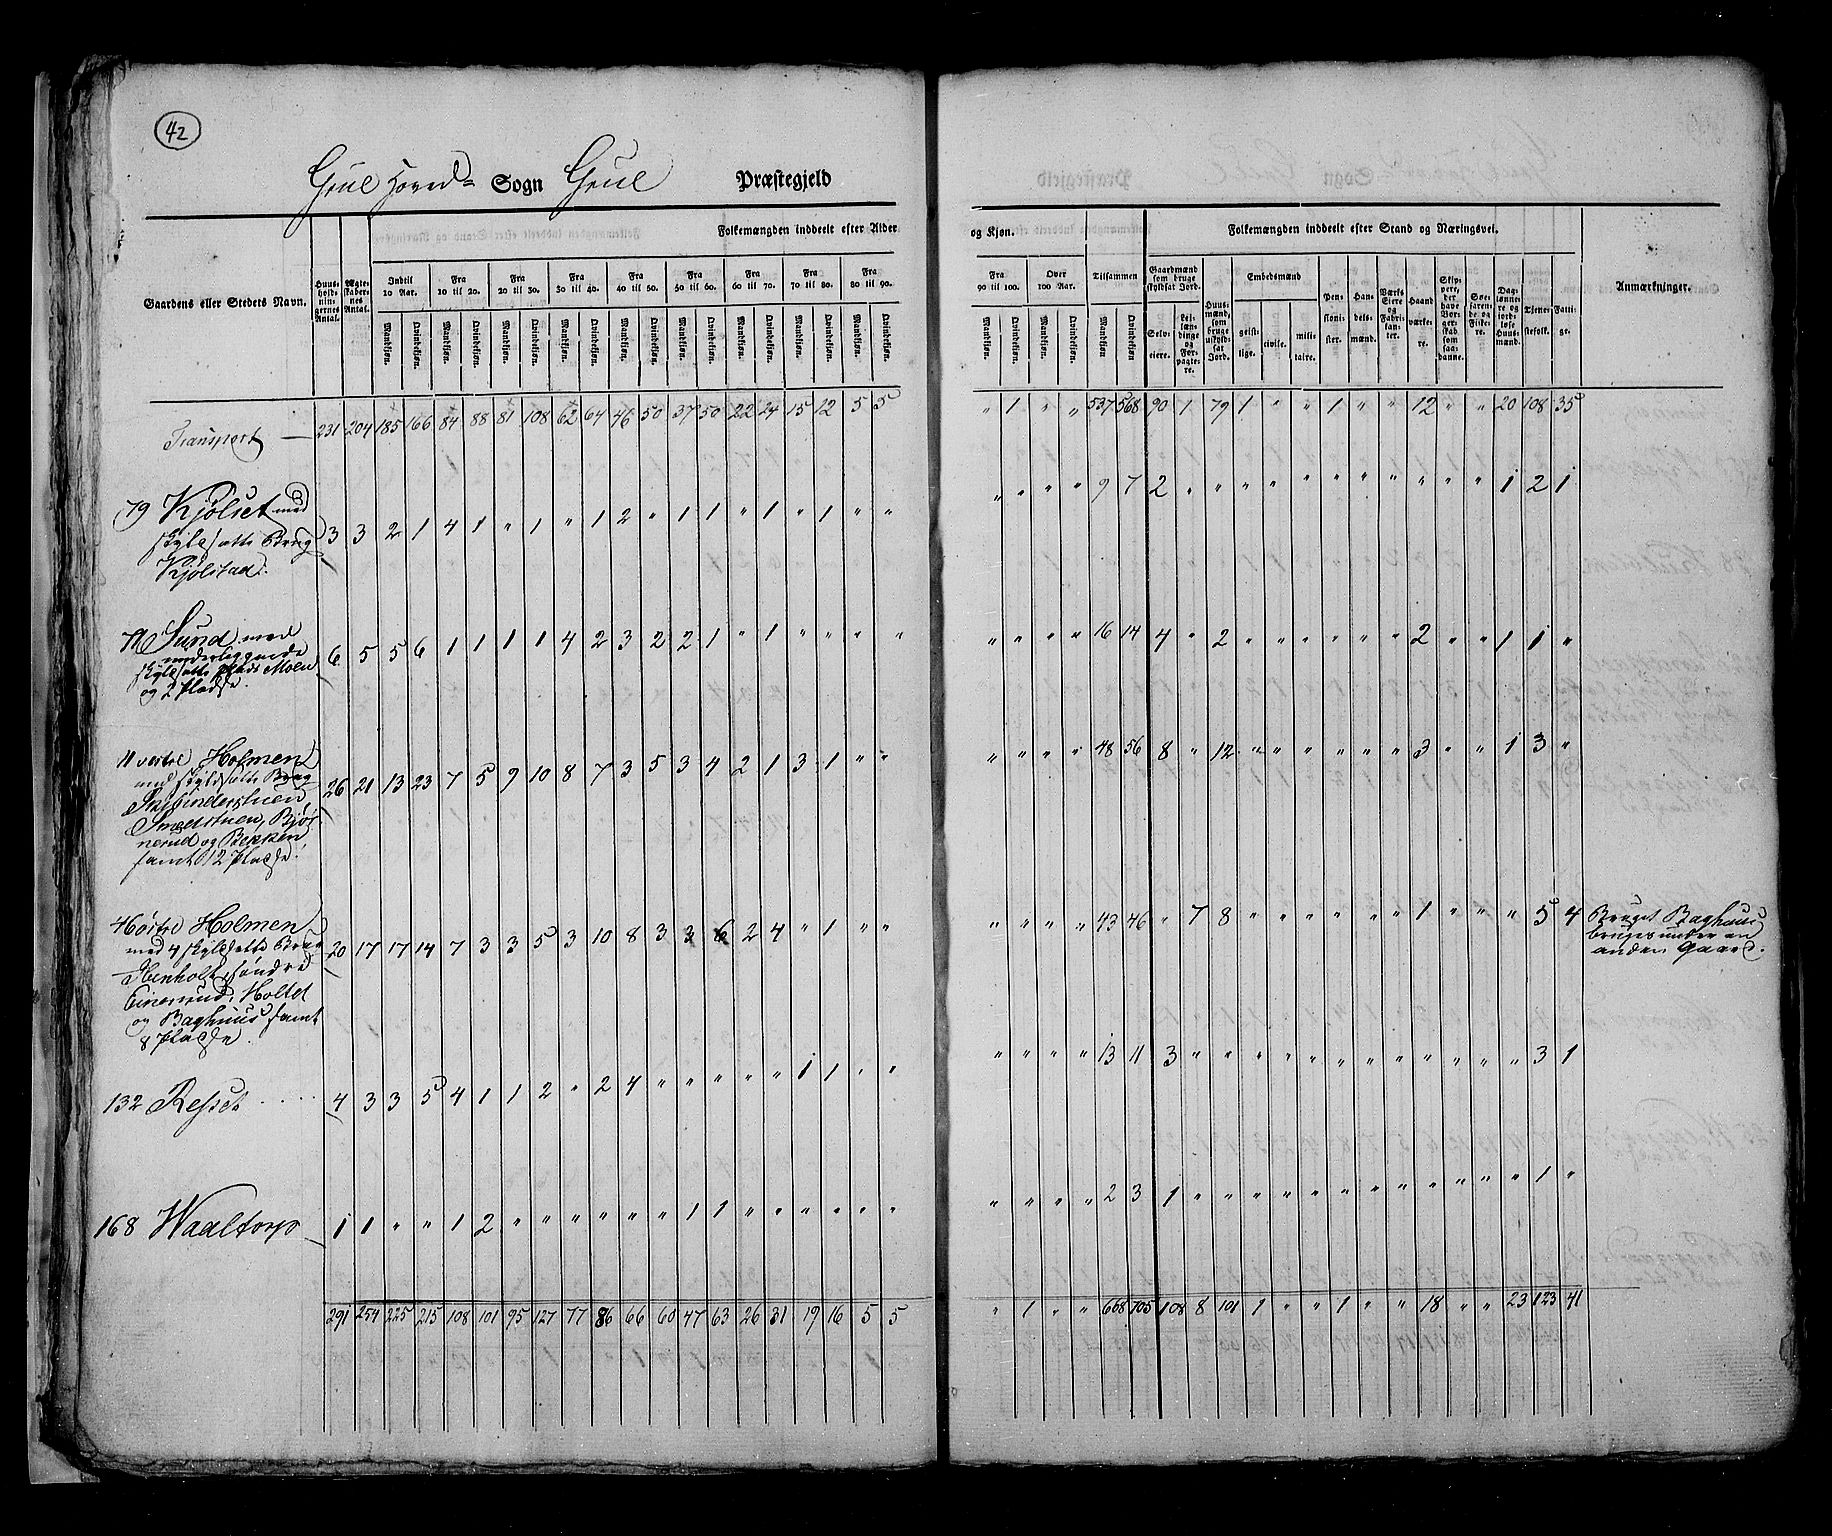 42
Grue Hoved= Sogn Grue Præstegjeld
Folkemængden inddeelt efter Alder og Kjøn.
Folkemængden inddeelt efter Stand og Næringsvei.
Gaardens eller Stedets Navn. Huusholdningernes Antal. Ægteskabernes Antal. Indtil 10 Aar. Fra 10 til 20. Fra 20 til 30. Fra 30 til 40. Fra 40 til 50. Fra 50 til 60. Fra 60 til 70. Fra 70 til 80. Fra 80 til 90. Fra 90 til 100. Over 100 Aar. Tilsammen Gaardmænd som bruge skyldsat Jord. Huusmænd, som bruge uskyldsat Jord. Embedsmænd Pensionister. Handelsmænd. Værks Eiere og Fabrikanter. Haandværkere. Skippere, der have Borgerskab som saadanne. Søefarende og Fiskere. Daglønnere og jordløse Huusmænd. Tjenestefolk. Fattige. Anmærkninger.
Mandkjøn. Qvindekjøn. Mandkjøn. Qvindekjøn. Mandkjøn. Qvindekjøn. Mandkjøn. Qvindekjøn. Mandkjøn. Qvindekjøn. Mandkjøn. Qvindekjøn. Mandkjøn. Qvindekjøn. Mandkjøn. Qvindekjøn. Mandkjøn. Qvindekjøn. Mandkjøn. Qvindekjøn. Mandkjøn. Qvindekjøn. Mandkjøn Qvindekjøn. Selveiere. Leilændinge og Forpagtere. geistlige. civile. militaire.
Transport — 231 204 185 166 84 88 81 108 62 64 46 50 37 50 22 24 15 12 5 5 " 1 " " 537 568 90 1 79 1 " " 1 " " 12 " " 20 108 35
79 Kjølset med
skyldsatte Brug
Kjølstad.
3 3 2 1 4 1 " 1 " 1 2 " 1 1 " 1 " 1 " " " " " " 9 7 2 " " " " " " " " " " " 1 2 1
Sund med
underliggende
skyldsatte plads Moen
og 2 Pladse.
6 5 5 6 1 1 1 1 4 2 3 2 2 1 " 1 " " " " " " " " 16 14 4 " 2 " " " " " " 2 " " 1 1 "
11 vestre Holmen
med skyldsatte Brug
Skibinderstuen
Smedstuen, Bjør-
nerud og Bekken
samt 12 Pladse.
26 21 13 23 7 5 9 10 8 7 3 5 3 4 2 1 3 1 " " " " " " 48 56 8 " 12 " " " " " " 3 " " 1 3 "
4 østre Holmen
med 4 skyldsatte Brug
Henholt, søndre
Einerud, Holtet
og Baghuus samt
8 Pladse.
20 17 17 14 7 3 3 5 3 10 8 3 3 6 2 4 " 1 " " " " " " 43 46 " 7 8 " " " " " " 1 " " " 5 4 Bruget Baghuus
bruges under en
anden Gaard.
132 Resset 4 3 3 5 4 1 1 2 " 2 4 " " " " " 1 1 " " " " " " 13 11 3 " " " " " " " " " " " " 3 1
168 Waaltorp 1 1 " " 1 2 " " " " " " 1 1 " " " " " " " " " " 2 3 1 " " " " " " " " " " " " 1 "
291 254 225 215 108 101 95 127 77 86 66 60 47 63 26 31 19 16 5 5 " 1 " " 668 705 108 8 101 1 " " 1 " " 18 " " 23 123 41